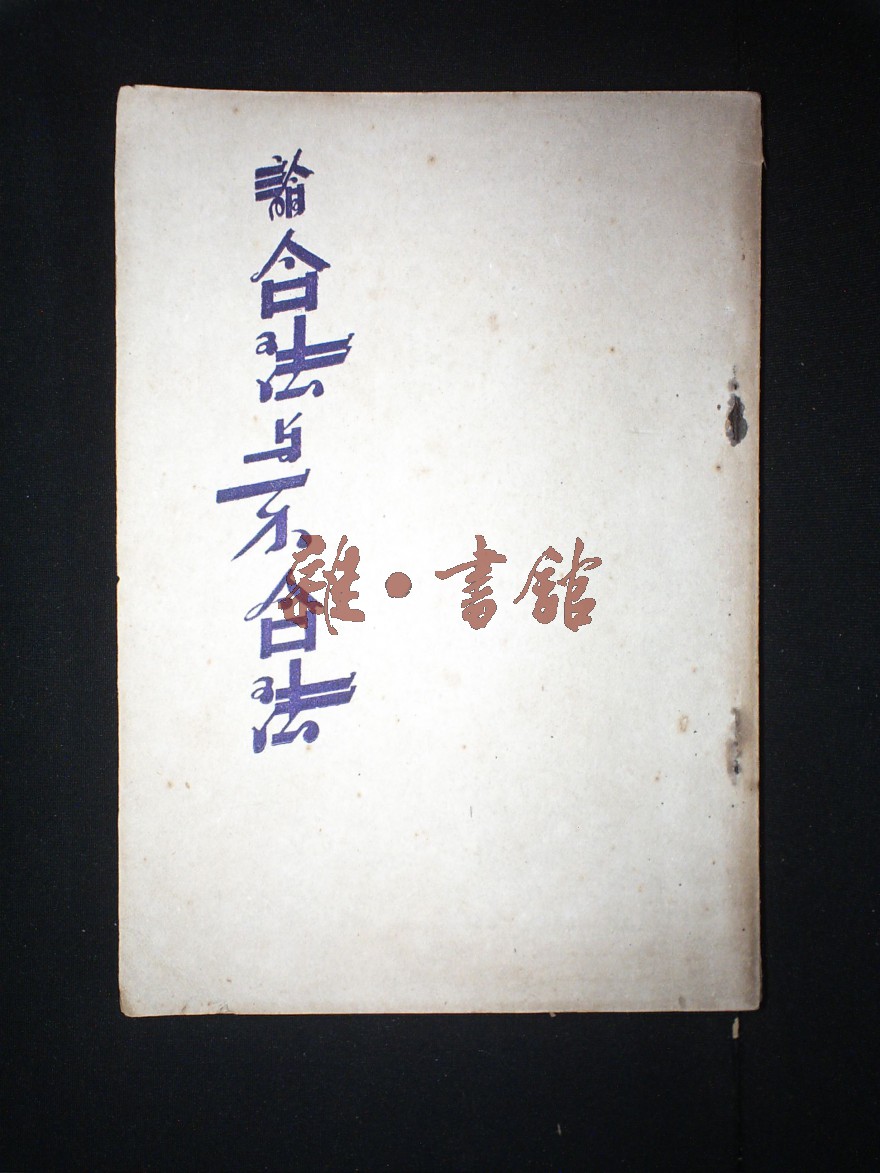 論合法与不合法
雜·書館